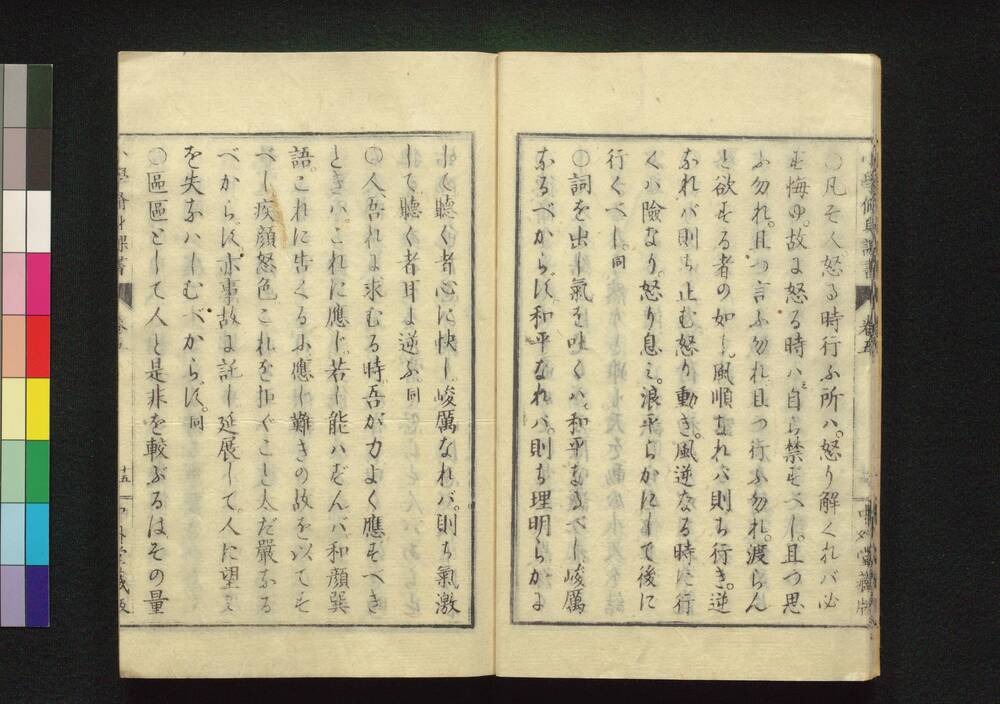 小學修身課書 卷五
〇凡そ人怒る時行ふ所ハ。怒り解くれバ必
ず悔ゆ。故に怒る時ハ自ら禁ずべし。且つ思
ふ勿れ。且つ言ふ勿れ。且つ行ふ勿れ。渡らん
と欲する者の如し。風順なれバ則ち行き。逆
なれバ則ち止む怒り動き。風逆なる時に行
くハ險なり。怒り息ミ。浪平らかにして後に
行くべし。同
〇詞を出し氣を吐くハ。和平なるべし峻厲
なるべからず。和平なれバ。則ち理明らかに
しく聽く者心に快し。峻厲なれバ。則ち氣激
して。聽く者耳に逆ふ。同
〇人吾れに求むる時。吾が力よく應ずべき
ときハ。これに應じ。若し能ハずんバ。和顏巽
語。これに告くるに應し難きの故を以てす
べし疾顏怒色これを拒ぐこと太だ嚴なる
べからず。亦事故に託し延展して。人に望ミ
を失なハしむべからず。同
〇區區として人と是非を較ぶるはその量
小學修身課書 卷五 十五